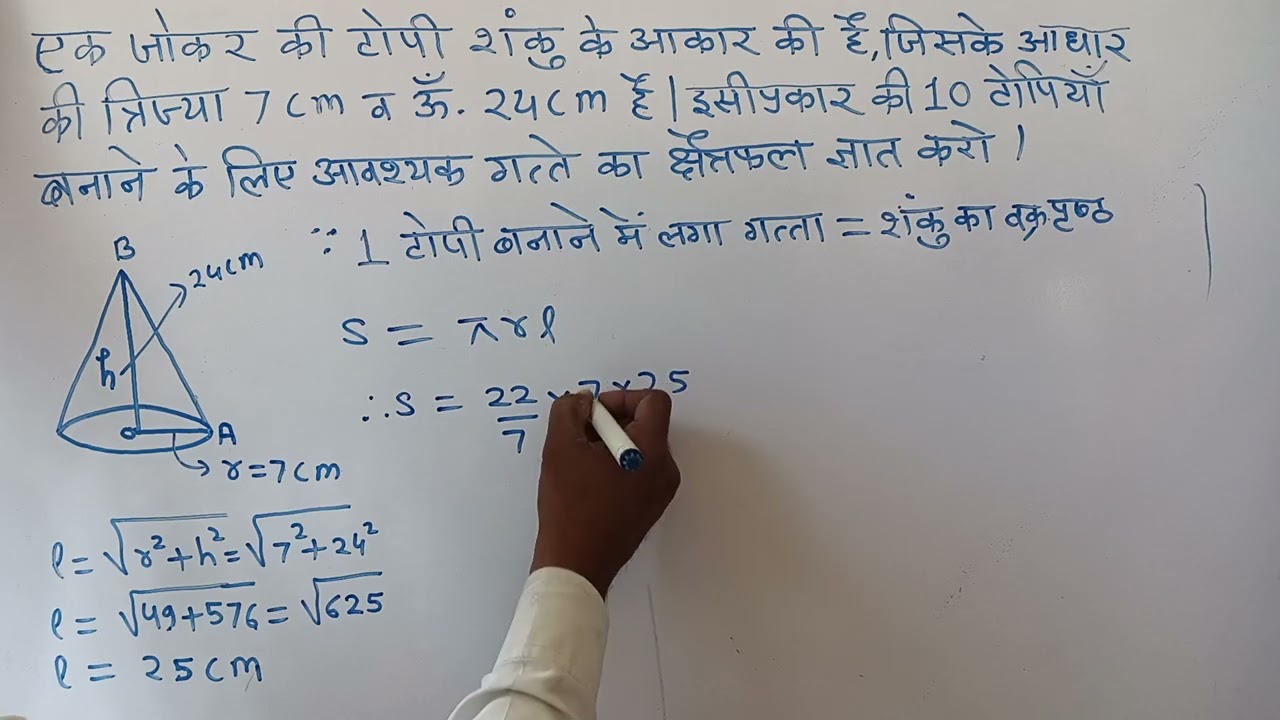 एक जोकर की टोपी शंकु के आकार की है, जिसके आधार
की त्रिज्या 7 cm व ऊँ. 24 cm है। इसीप्रकार की 10 टोपियाँ
बनाने के लिए आवश्यक गत्ते का क्षैत्रफल ज्ञात करो।
∵ 1 टोपी बनाने में लगा गत्ता = शंकु का वक्र पृष्ठ
B
24cm
h
A
r=7cm
S = πrl
∴S = 22/7 × 7 × 25
l = √r²+h² = √7²+24²
l = √49+576 = √625
l = 25 cm